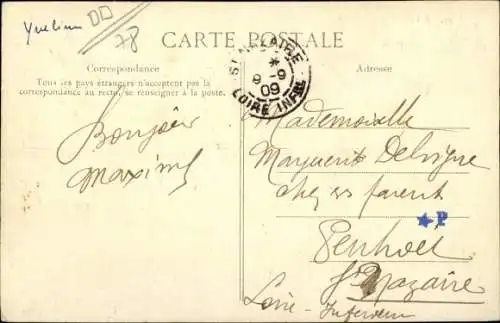 Yvelines
DD
78
CARTE POSTALE
Correspondance
Tous les pays étrangers n'acceptent pas la
correspondance au recto, se renseigner à la poste.
Adresse
ST NAZAIRE
*
8 -9
09
LOIRE INFRE
Bonjour
Maxime
Mademoiselle
Marguerite Delvigne
chez ses parent
P
Penhoët
St Nazaire
Loire-Inferieure